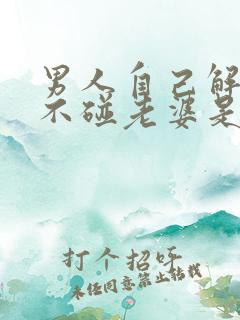 男人自己解
不碰老婆是
打个招呼
未经同意禁止转载